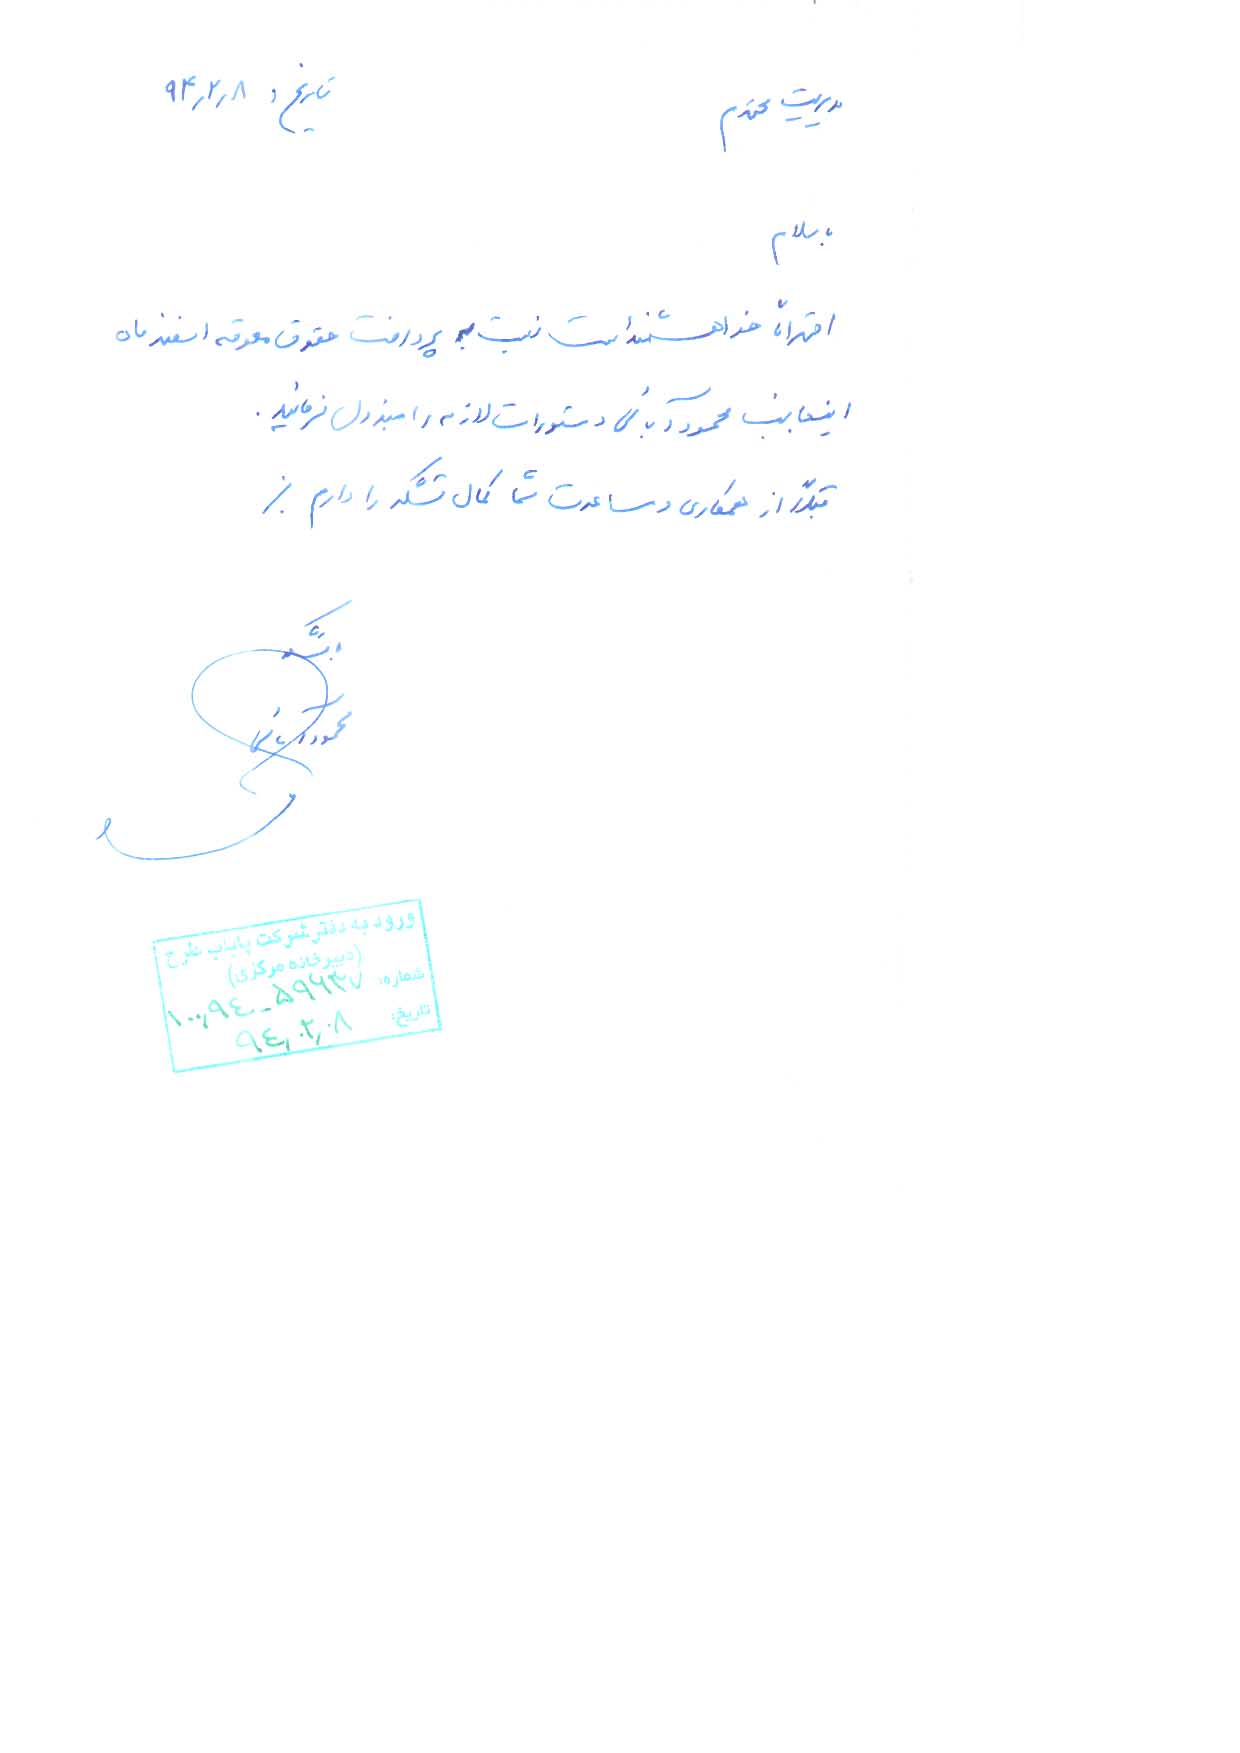 تاریخ : ۹۴٫۲٫۸
مدیریت محترم
با سلام
احتراماً خواهشمند است نسبت به پرداخت حقوق معوقه اسفند ماه
اینجانب محمود آقبائی دستورات لازمه را مبذول فرمائید.
قبلاً از همکاری و مساعدت شما کمال تشکر را دارم
با تشکر
محمود
ورود به دفتر شرکت پایاب طرح
(دبیرخانه مرکزی)
شماره: ۱۰۰٫۹٤-۵۹۶۳۷
تاریخ: ۹٤٫۰۲٫۰۸